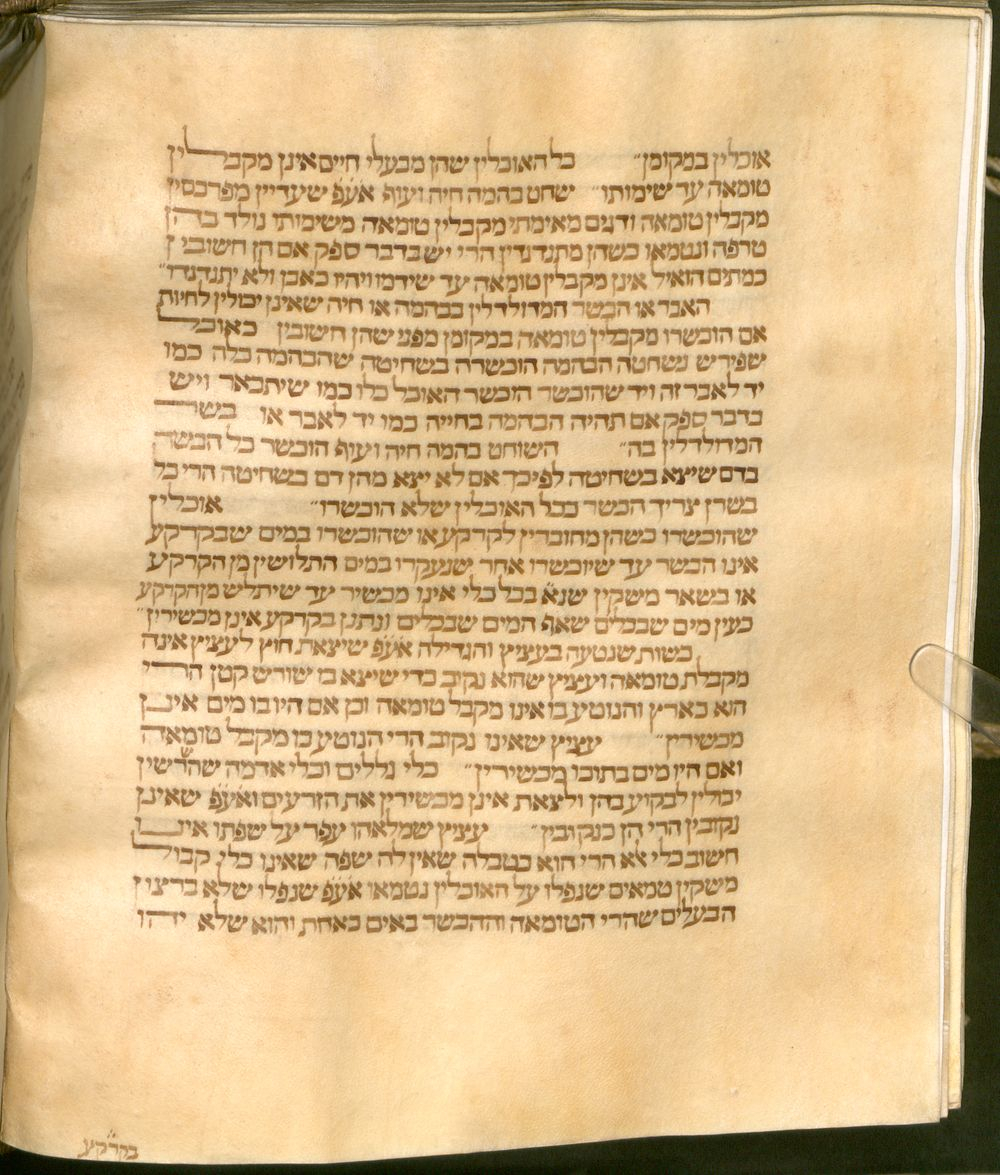 אוכלין במקומן״ כל האוכלין שהן מבעלי חיים אינן מקבלין
טומאה עד שימותו״ שחט בהמה חיה ועוף אע֗פ שעדיין מפרכסין
מקבלין טומאה ודגים מאימתי מקבלין טומאה משימותו נולד בהן
טרפה ונטמאו כשהן מתנדנדין הרי יש בדבר ספק אם הן חשובין
כמתים הואיל אינן מקבלין טומאה עד שידמו ויהיו כאבן ולא יתנדנדו״
האבר או הבשר המדולדלין בבהמה או חיה שאינן יכולין לחיות
אם הוכשרו מקבלין טומאה במקומן מפני שהן חשובין כאוכל
שפירש נשחטה הבהמה הוכשרה בשחיטה שהבהמה כלה כמו
יד לאבר זה ויד שהוכשר הוכשר האוכל כלו כמו שיתבאר ויש
בדבר ספק אם תהיה הבהמה בחייה כמו יד לאבר או בשר
המדולדלין בה״ השוחט בהמה חיה ועוף הוכשר כל הבשר
בדם שיצא בשחיטה לפיכך אם לא יצא מהן דם בשחיטה הרי כל
בשרן צריך הכשר ככל האוכלין שלא הוכשרו״ אוכלין
שהוכשרו כשהן מחוברין לקרקע או שהוכשרו במים שבקרקע
אינו הכשר עד שיוכשרו אחר שנעקרו במים התלושין מן הקרקע
או בשאר משקין שנא֗ בכל כלי אינו מכשיר עד שיתלש מן הקרקע
כעין מים שבכלים שאף המים שבכלים ונתנן בקרקע אינן מכשירין״
כשות שנטעה בעציץ והגדילה אע֗פ שיצאת חוץ לעציץ אינה
מקבלת טומאה ועציץ שהוא נקוב כדי שיצא בו שורש קטן הרי
הוא כארץ והנוטיע בו אינו מקבל טומאה וכן אם היו בו מים אינן
מכשירין״ עציץ שאינו נקוב הרי הנוטע בו מקבל טומאה
ואם היו מים בתוכו מכשירין״ כלי גללים וכלי אדמה שהשרשין
יכולין לבקוע בהן ולצאת אינן מכשירין את הזרעים ואע֗פ שאינן
נקובין הרי הן כנקובין״ עציץ שמלאהו עפר על שפתו אינו
חשוב כלי אלא הרי הוא כטבלה שאין לה שפה שאינו כלי קבול
משקין טמאים שנפלו על האוכלין נטמאו אע֗פ שנפלו שלא ברצון
הבעלים שהרי הטומאה וההכשר באים כאחת והוא שלא יהו
בקרקע